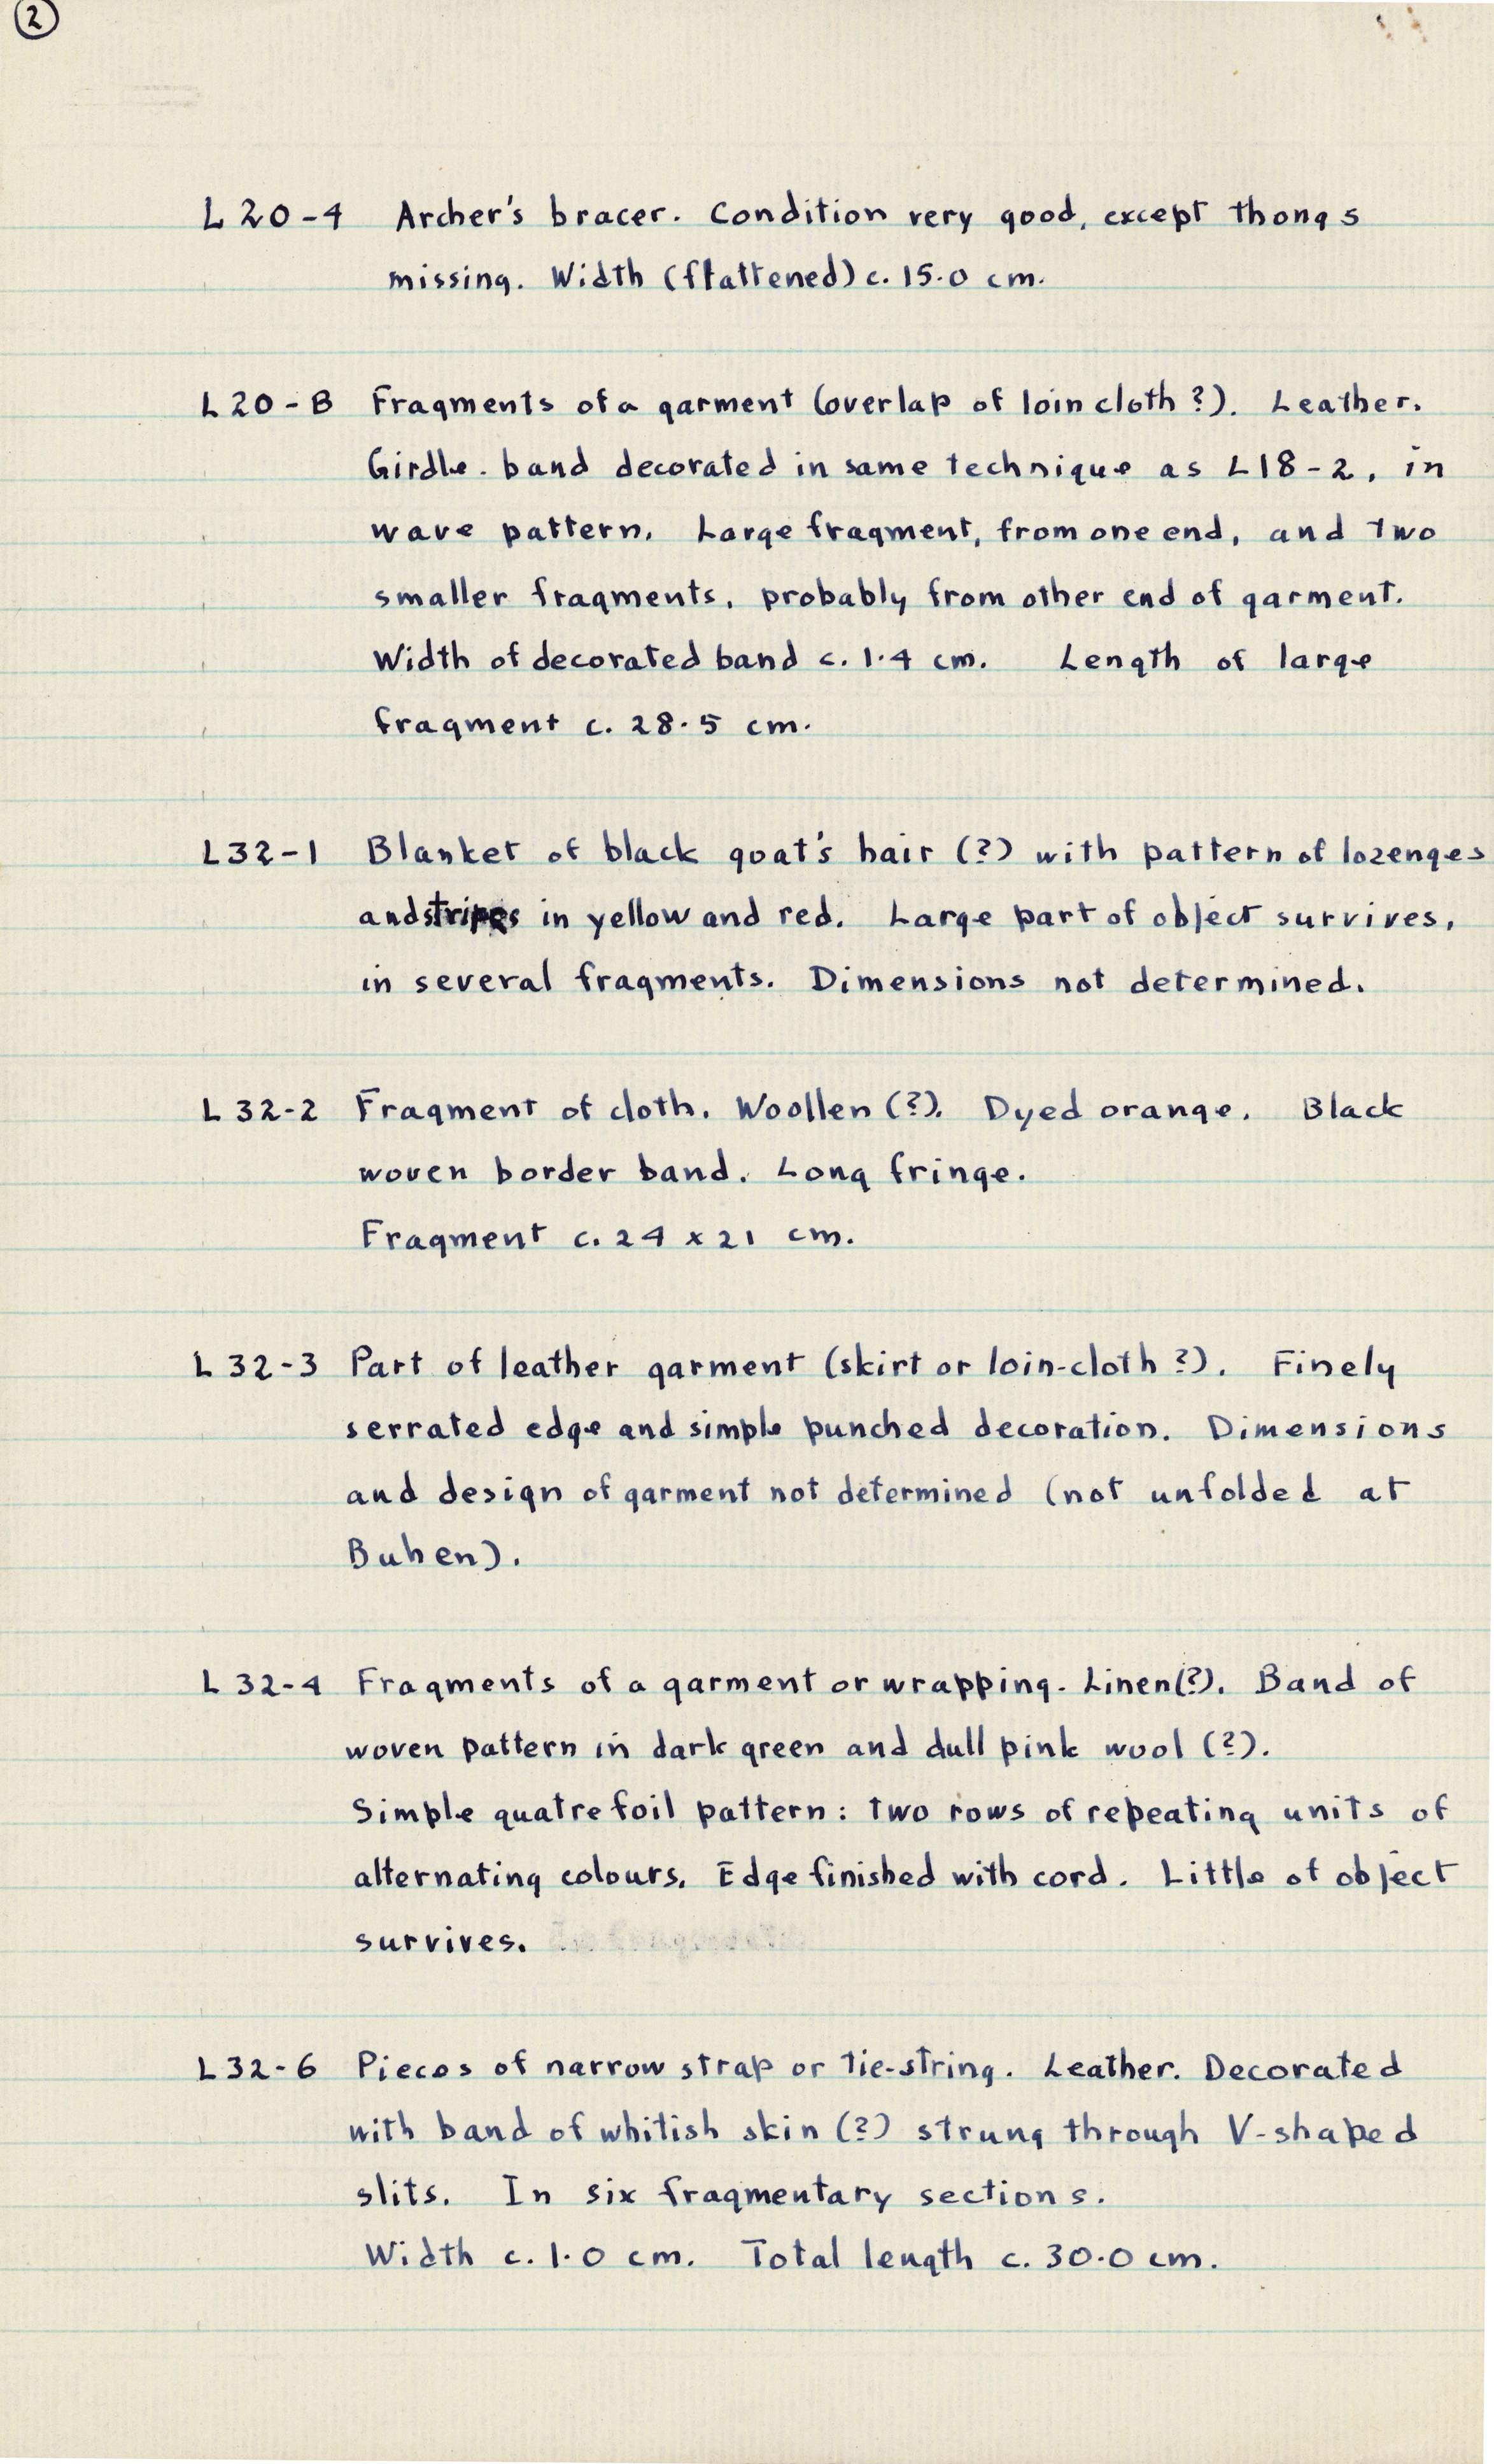 2
L20-4 Archer's bracer. Condition very good, except thongs
missing. Width (flattened) c. 15.0 cm.
L20-B Fragments of a garment (overlap of loin cloth?). Leather.
Girdle-band decorated in same technique as L18-2, in
wave pattern. Large fragment, from one end, and two
smaller fragments, probably from other end of garment.
Width of decorated band c. 1.4 cm. Length of large
fragment c. 28.5 cm.
L32-1 Blanket of black goat's hair (?) with pattern of lozenges
and stripes in yellow and red. Large part of object survives,
in several fragments. Dimensions not determined.
L32-2 Fragment of cloth. Woollen (?). Dyed orange. Black
woven border band. Long fringe.
Fragment c. 24 x 21 cm.
L32-3 Part of leather garment (skirt or loin-cloth?). Finely
serrated edge and simple punched decoration. Dimensions
and design of garment not determined (not unfolded at
Buhen).
L32-4 Fragments of a garment or wrapping. Linen (?). Band of
woven pattern in dark green and dull pink wool (?).
Simple quatrefoil pattern: two rows of repeating units of
alternating colours. Edge finished with cord. Little of object
survives.
L32-6 Pieces of narrow strap or tie-string. Leather. Decorated
with band of whitish skin (?) strung through V-shaped
slits. In six fragmentary sections.
Width c. 1.0 cm. Total length c. 30.0 cm.